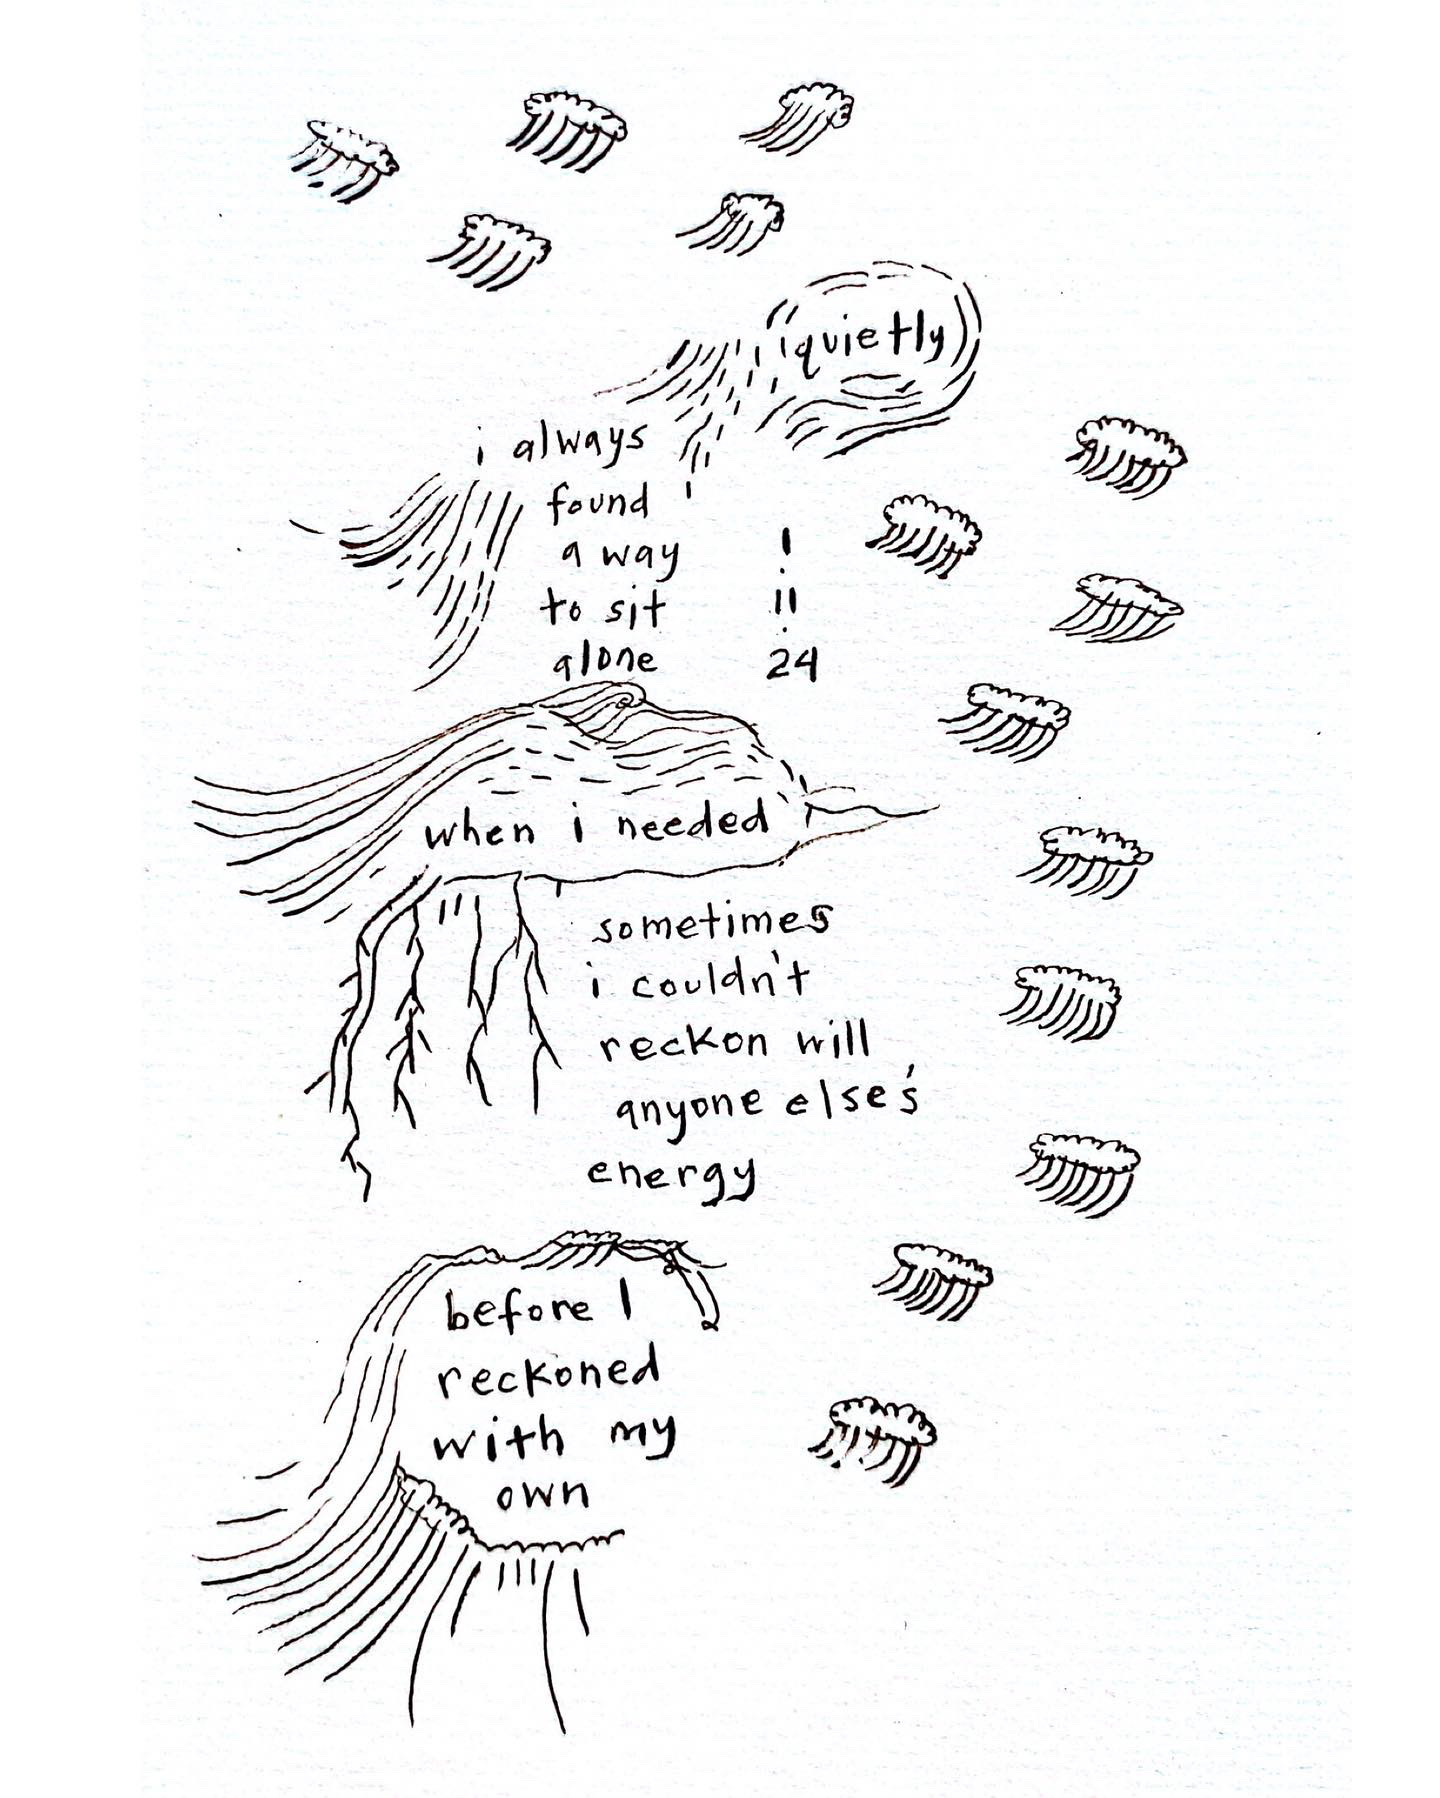 (quietly)
i always
found
a way
to sit
alone
1.
11.
24
when i needed
sometimes
i couldn't
reckon will
anyone else's
energy
before I
reckoned
with my
own